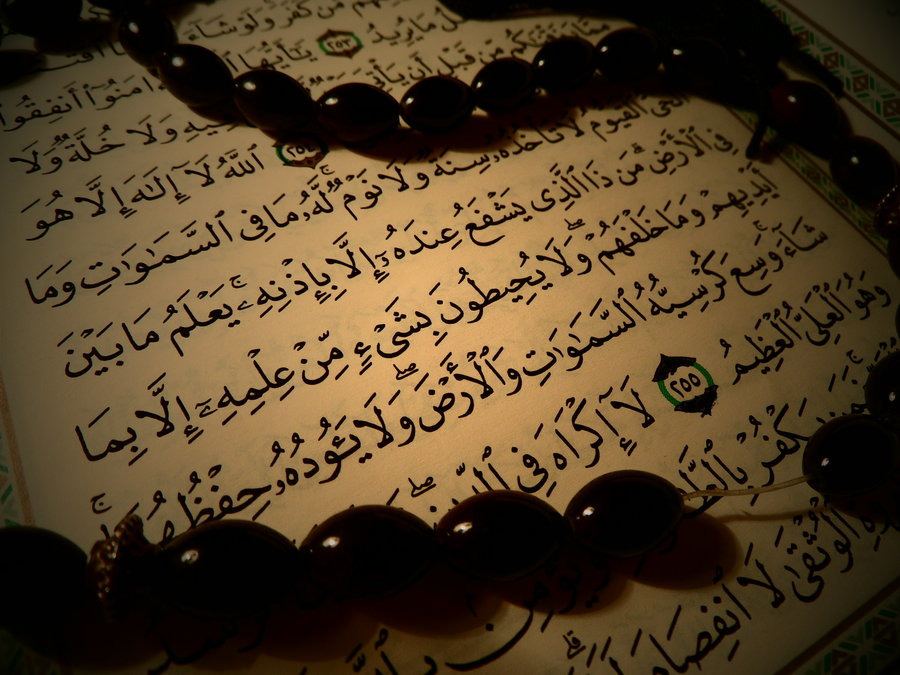 مَّن كَفَرَ وَلَوْ شَآءَ
مَا يُرِيدُ ٢٥٣ يَٰٓأَيُّهَا ءَامَنُوٓا۟ أَنفِقُوا۟
مِّن قَبْلِ أَن يَأْتِىَ فِيهِ وَلَا خُلَّةٌ وَلَا
٢٥٤ ٱللَّهُ لَآ إِلَٰهَ إِلَّا هُوَ
ٱلْحَىُّ ٱلْقَيُّومُ لَا تَأْخُذُهُۥ سِنَةٌ وَلَا نَوْمٌ ۚ لَّهُۥ مَا فِى ٱلسَّمَٰوَٰتِ وَمَا
فِى ٱلْأَرْضِ ۗ مَن ذَا ٱلَّذِى يَشْفَعُ عِندَهُۥٓ إِلَّا بِإِذْنِهِۦ ۚ يَعْلَمُ مَا بَيْنَ
أَيْدِيهِمْ وَمَا خَلْفَهُمْ ۖ وَلَا يُحِيطُونَ بِشَىْءٍ مِّنْ عِلْمِهِۦٓ إِلَّا بِمَا
شَآءَ ۚ وَسِعَ كُرْسِيُّهُ ٱلسَّمَٰوَٰتِ وَٱلْأَرْضَ ۖ وَلَا يَـُٔودُهُۥ حِفْظُهُمَا ۚ
وَهُوَ ٱلْعَلِىُّ ٱلْعَظِيمُ ٢٥٥ لَآ إِكْرَاهَ فِى
يَكْفُرْ
ٱلْوُثْقَىٰ لَا ٱنفِصَامَ